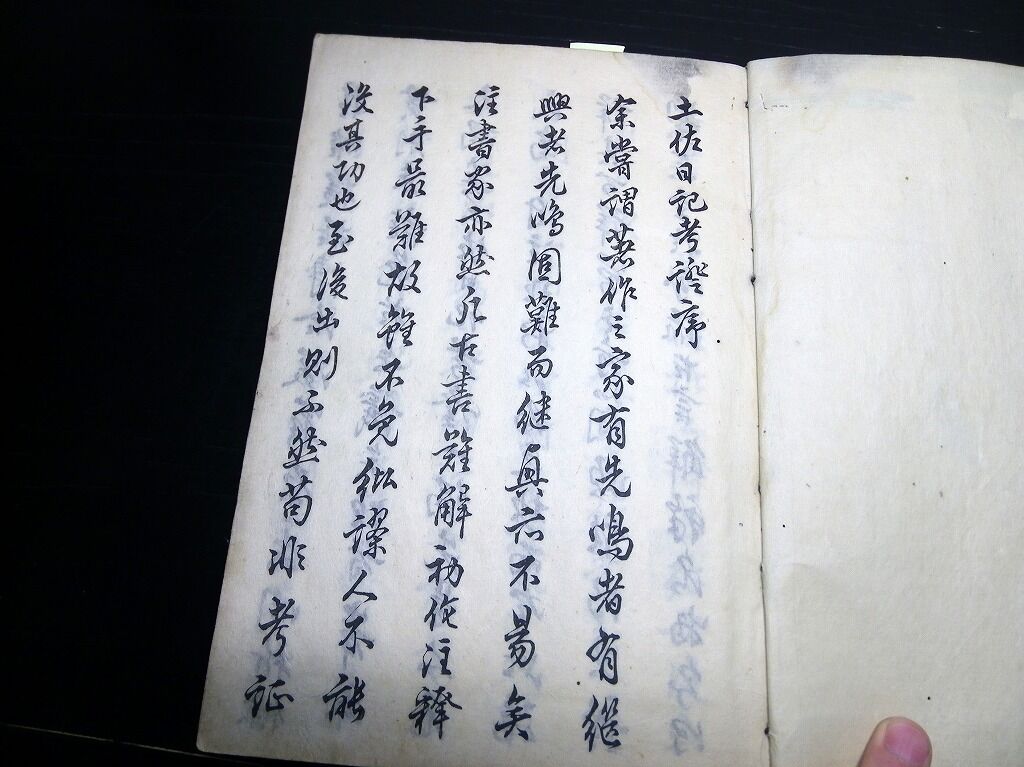 土佐日記考證序
余嘗謂著作之家有先鳴者有継
興者先鳴固難而継興亦不易矣
注書家亦然凡古書難解初作注釋
下手最難故雖不免紕謬人不能
没其功也至後出則不然苟非考証